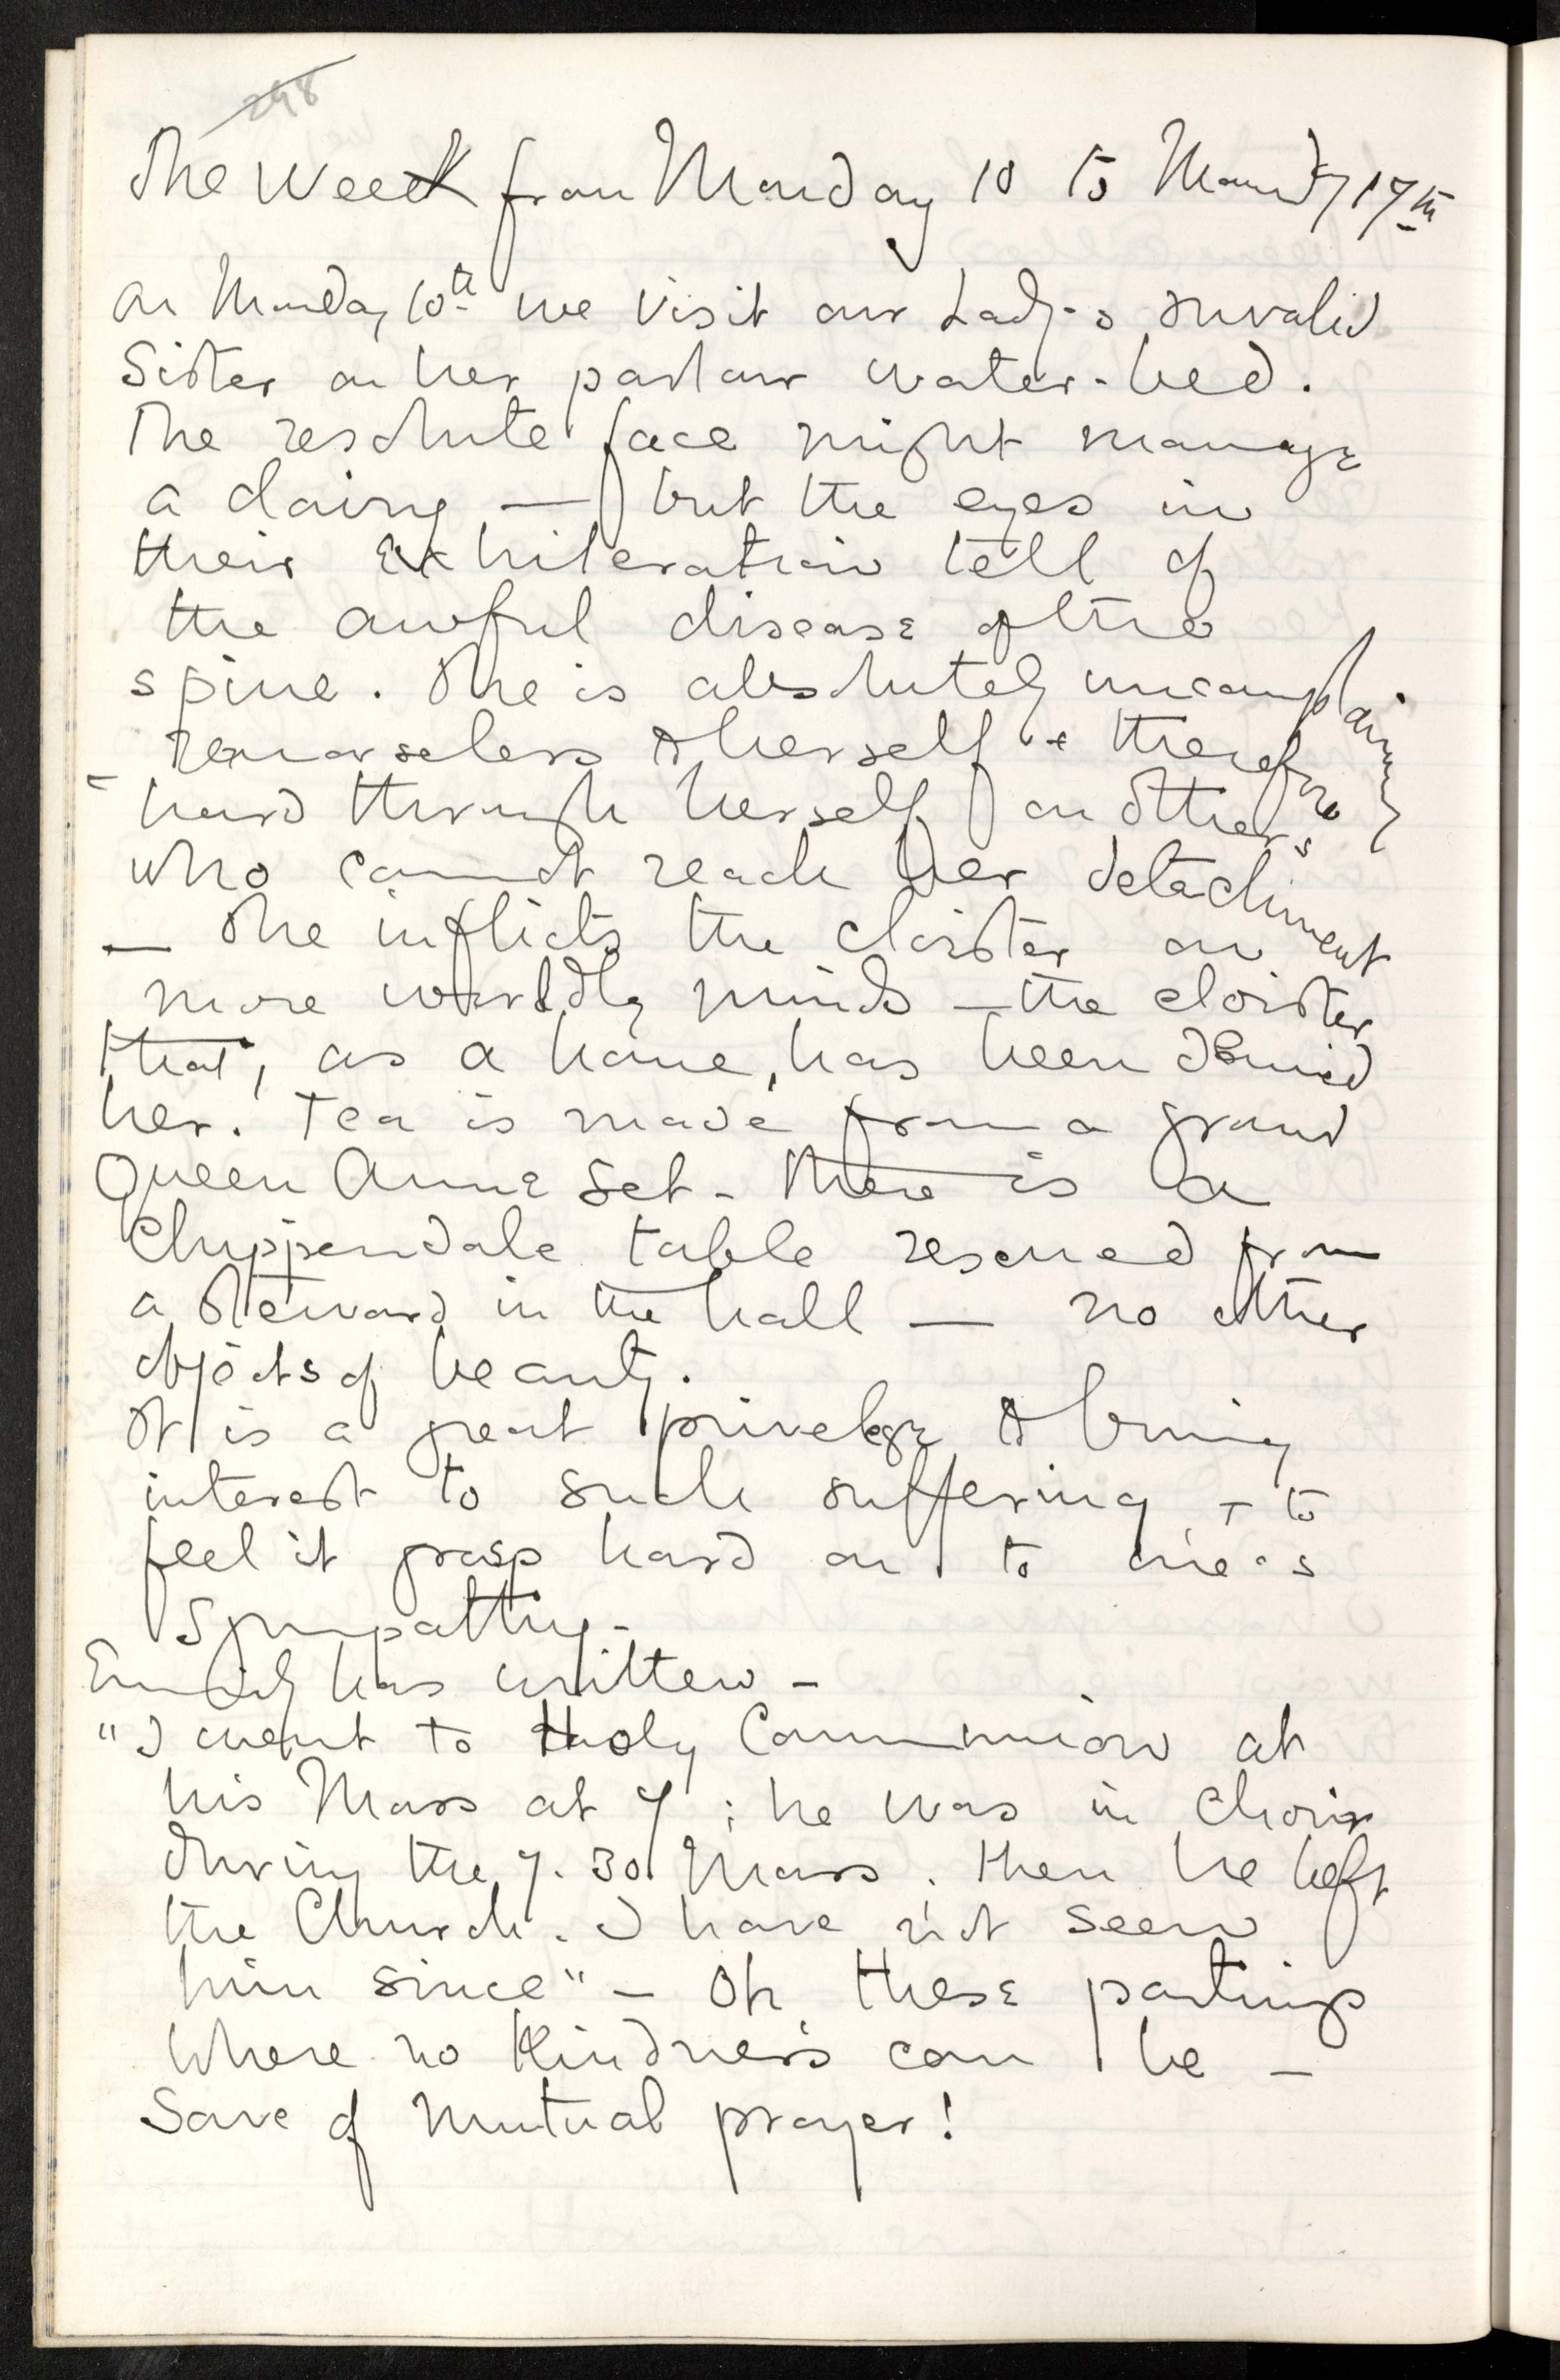 298
The Week from Monday 10 to Monday 17th
On Monday 10th we visit our Lady's invalid
Sister on her parlour water-bed.
The resolute face might manage
a dairy — but the eyes in
their exhileration tell of
the awful disease of the
spine. She is absolutely uncomplaining
remorseless to herself & therefore
hard through herself on others
who cannot reach her detachment
— She inflicts the cloister on
more worldly minds — the cloister
that, as a home, has been denied
her. Tea is made from a grand
Queen Anne set - there is a
Chippendale table rescued from
a steward in the hall — no other
objects of beauty.
It is a great privelege to bring
interest to such suffering, + to
feel it grasp hard on to one's
Sympathy -
Emily has written -
"I went to Holy Communion at
his Mass at 7 ; he was in choir
during the 7.30 Mass. Then he left
the Church. I have not seen
him since" - Oh these partings
Where no Kindness can be -
Save of mutual prayer!